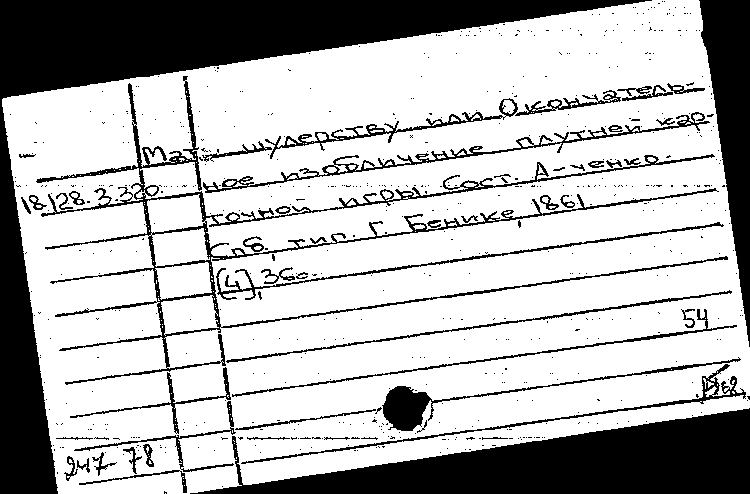 Мат шулерству или Окончатель-
ное изобличение плутней кар-
18/28.3.320
точной игры. Сост. А-ченко.
Спб., тип. Г. Бенике, 1861
[4], 36с.
54
247-78